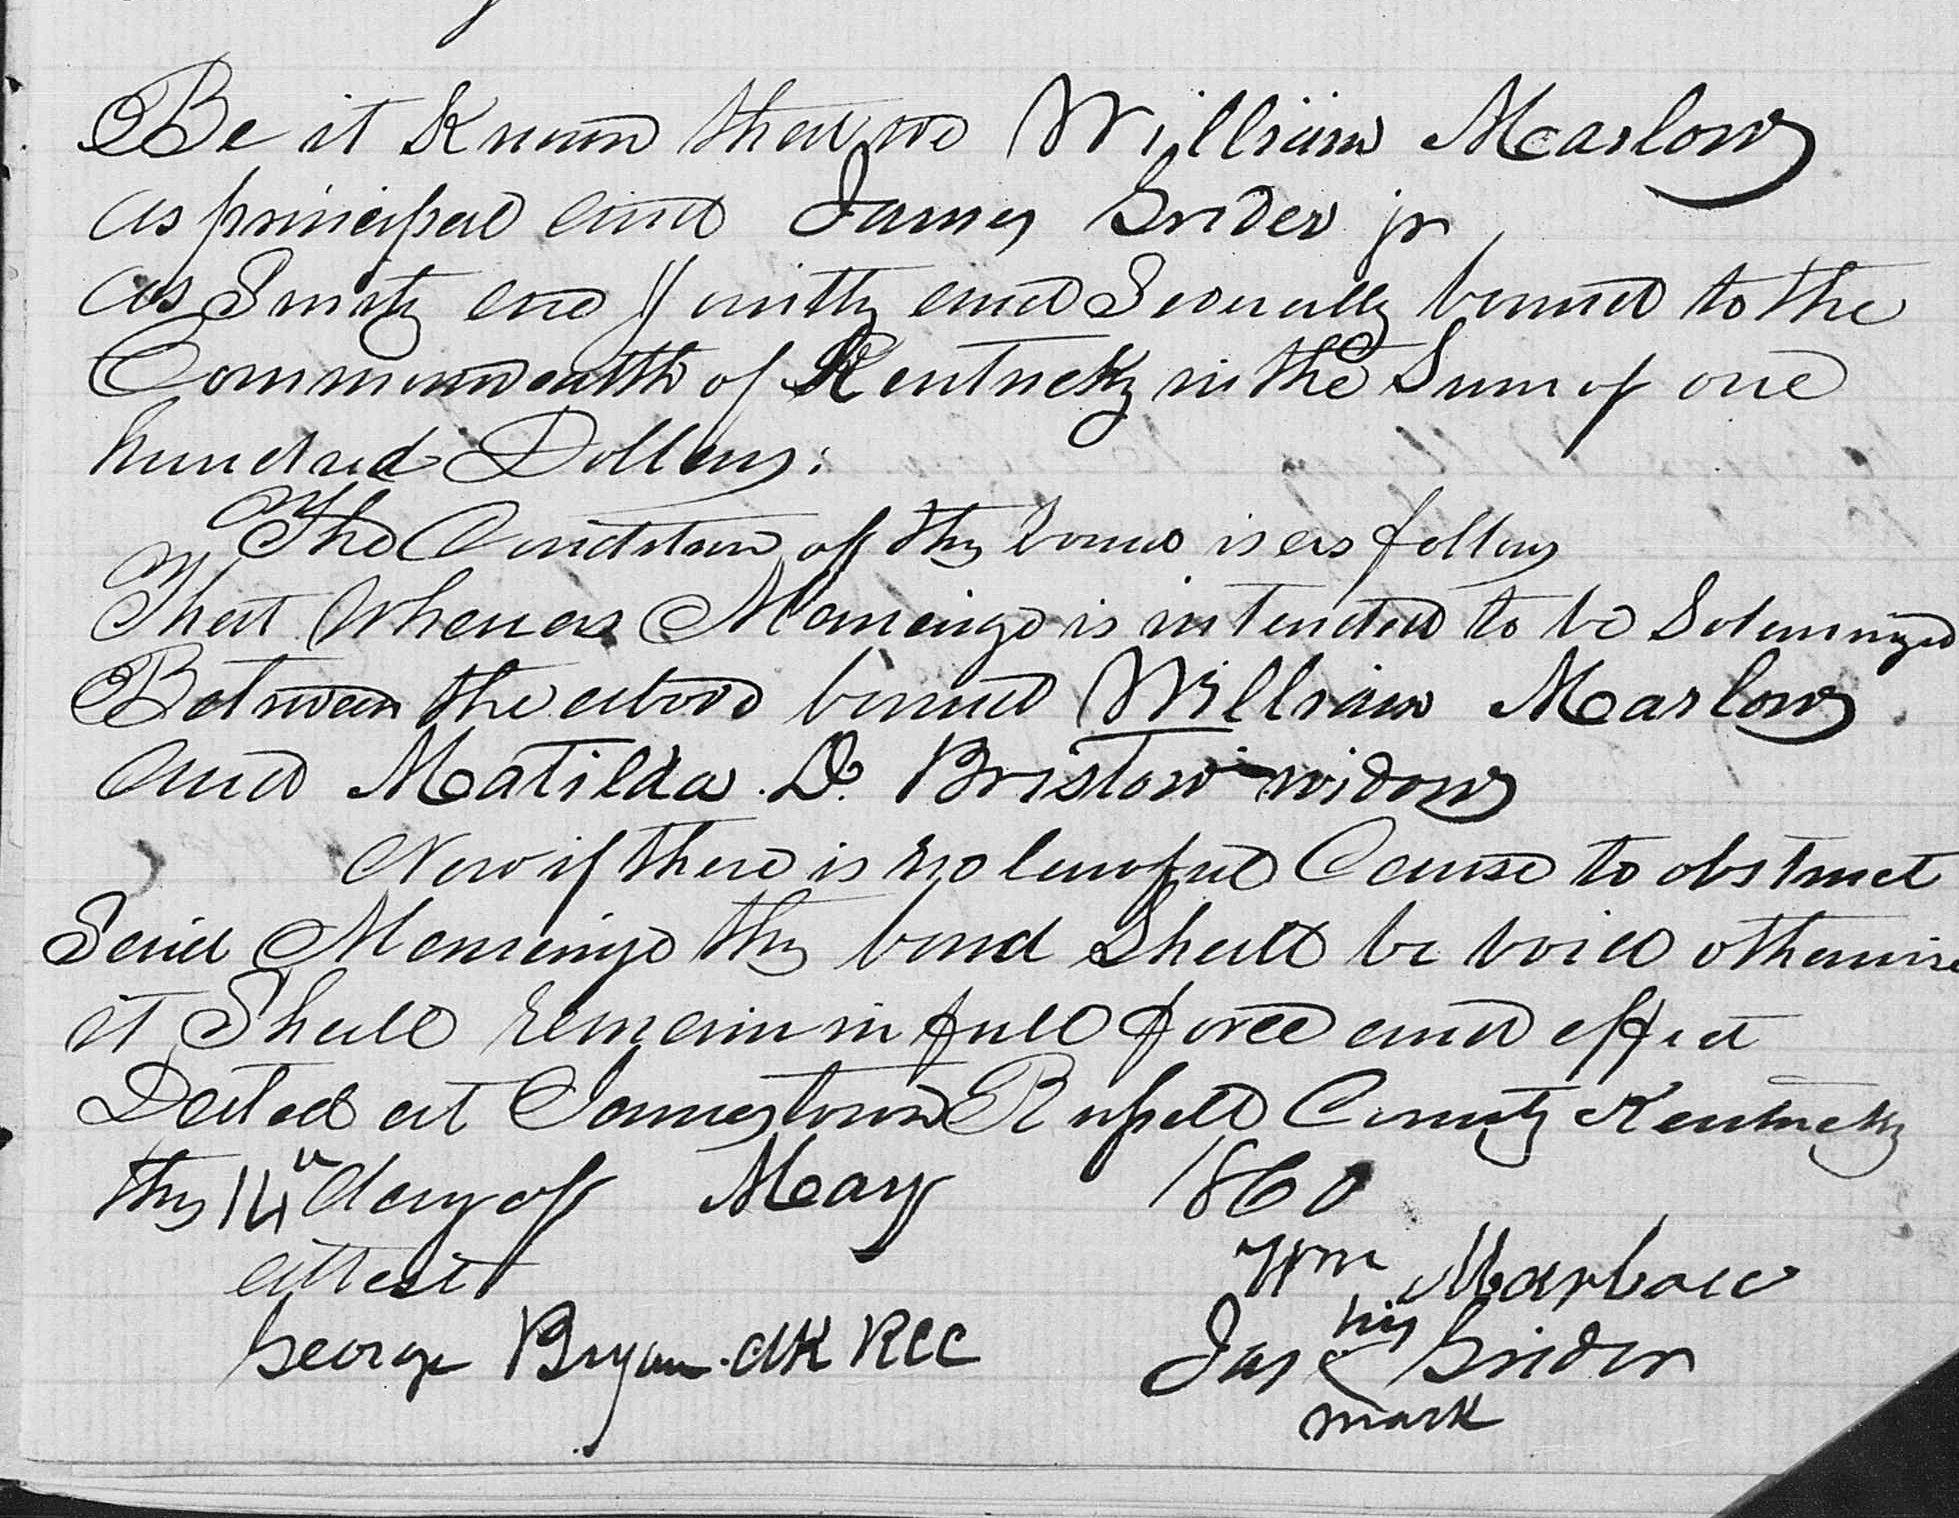 Be it Known that we William Marlow
as principal and James Grider jr
as Surity are Jointly and Severally bound to the
Commonwealth of Kentucky in the Sum of one
hundred Dollars:
The Condition of this bond is as follows
That Whereas Marriage is intended to be Solemnized
Between the above bound William Marlow
and Matilda D. Bristow widow
Now if there is no lawful Cause to obstruct
Said Marriage this bond Shall be void otherwise
it Shall remain in full force and effect
Dated at Jamestown Russell County Kentucky
this 14th day of May 1860
attest Wm Marlow
George Bryan clk RCC Jas his Grider
mark